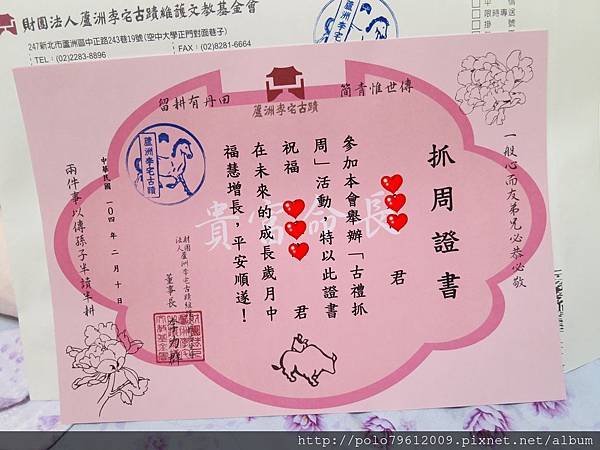 財團法人蘆洲李宅古蹟維護文教基金會
247新北市蘆洲區中正路243巷19號(空中大學正門對面巷子)
TEL:(02)2283-8896 FAX:(02)8281-6664
留耕有丹田
簡青惟世傳
蘆洲李宅古蹟
蘆洲李宅古蹟
一般心而友弟兄必恭必敬
抓周證書
君
參加本會舉辦「古禮抓
周」活動,特以此證書
祝福 君
在未來的成長歲月中
福慧增長,平安順遂!
貴富命長
財團
法人蘆洲李宅古蹟維
董事長
中華民國一〇四年二月十日
兩件事以傳孫子半讀半耕
http://polo79612009.pixnet.net/album